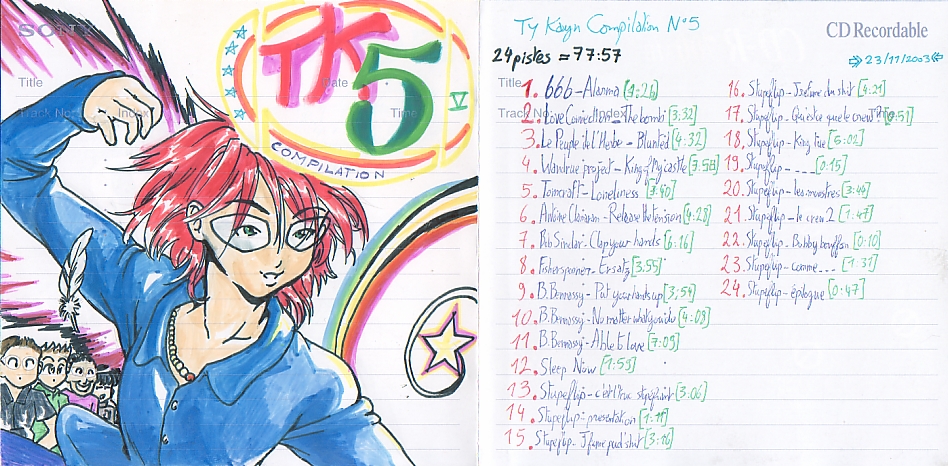 SONY
Title
Date
Track No.
Index
Time
TK
5
V
COMPILATION
Ty Kayn Compilation N°5
CD Recordable
24 pistes = 77:57
23/11/2003
Title
Track No.
Index
1. 666 - Alarma [4:26]
2. - The bomb [3:32]
3. Le Peuple de l'Herbe - Blunted [4:32]
4. Wamdue project - King of My castle [3:58]
5. Tomcraft - Loneliness [3:40]
6. Antoine Clamaran - Release the tension [4:28]
7. Bob Sinclar - Clap your hands [6:16]
8. Fisherspooner - Ersatz [3:55]
9. B. Benassy - Put your hands up [3:59]
10. B. Benassy - No matter what you do [4:09]
11. B. Benassy - Able to love [7:09]
12. Sleep Now [1:59]
13. Stupeflip - c'est l'truc stupefiant [3:06]
14. Stupeflip - presentation [1:19]
15. Stupeflip - J'fume pud'shit [3:16]
16. Stupeflip - J'refume du shit [4:21]
17. Stupeflip - Qu'est ce que le crew ? [0:51]
18. Stupeflip - King tue [5:02]
19. Stupeflip - _ _ _ _ [0:15]
20. Stupeflip - les monstres [3:44]
21. Stupeflip - le crew 2 [1:47]
22. Stupeflip - Bubby bouffon [0:10]
23. Stupeflip - comme... [1:31]
24. Stupeflip - épilogue [0:47]